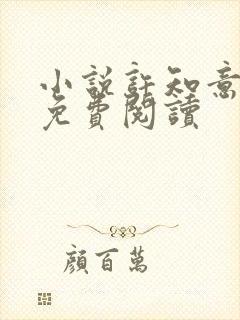 小說許知意
免費閱讀
顏百萬